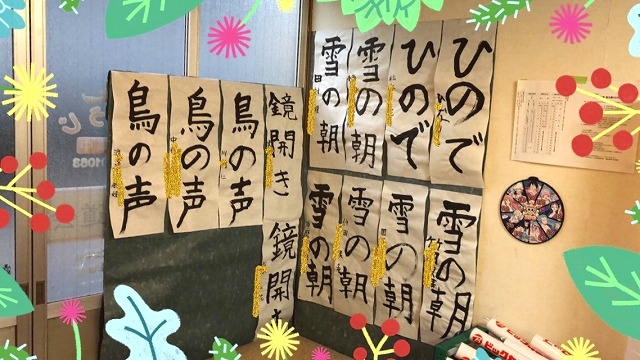 ひので
ひので
雪の朝
雪の朝
雪の朝
雪の朝
雪の朝
雪の朝
鏡開き
鳥の声
鳥の声
鳥の声
鏡開き